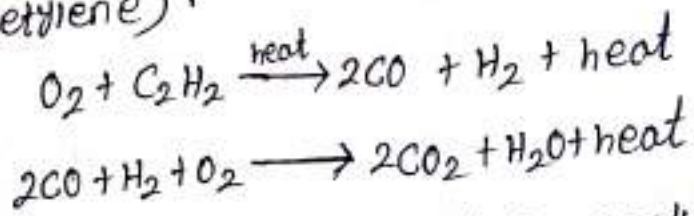 etylene)
O₂ + C₂H₂ —heat→ 2CO + H₂ + heat
2CO + H₂ + O₂ ⟶ 2CO₂ + H₂O + heat